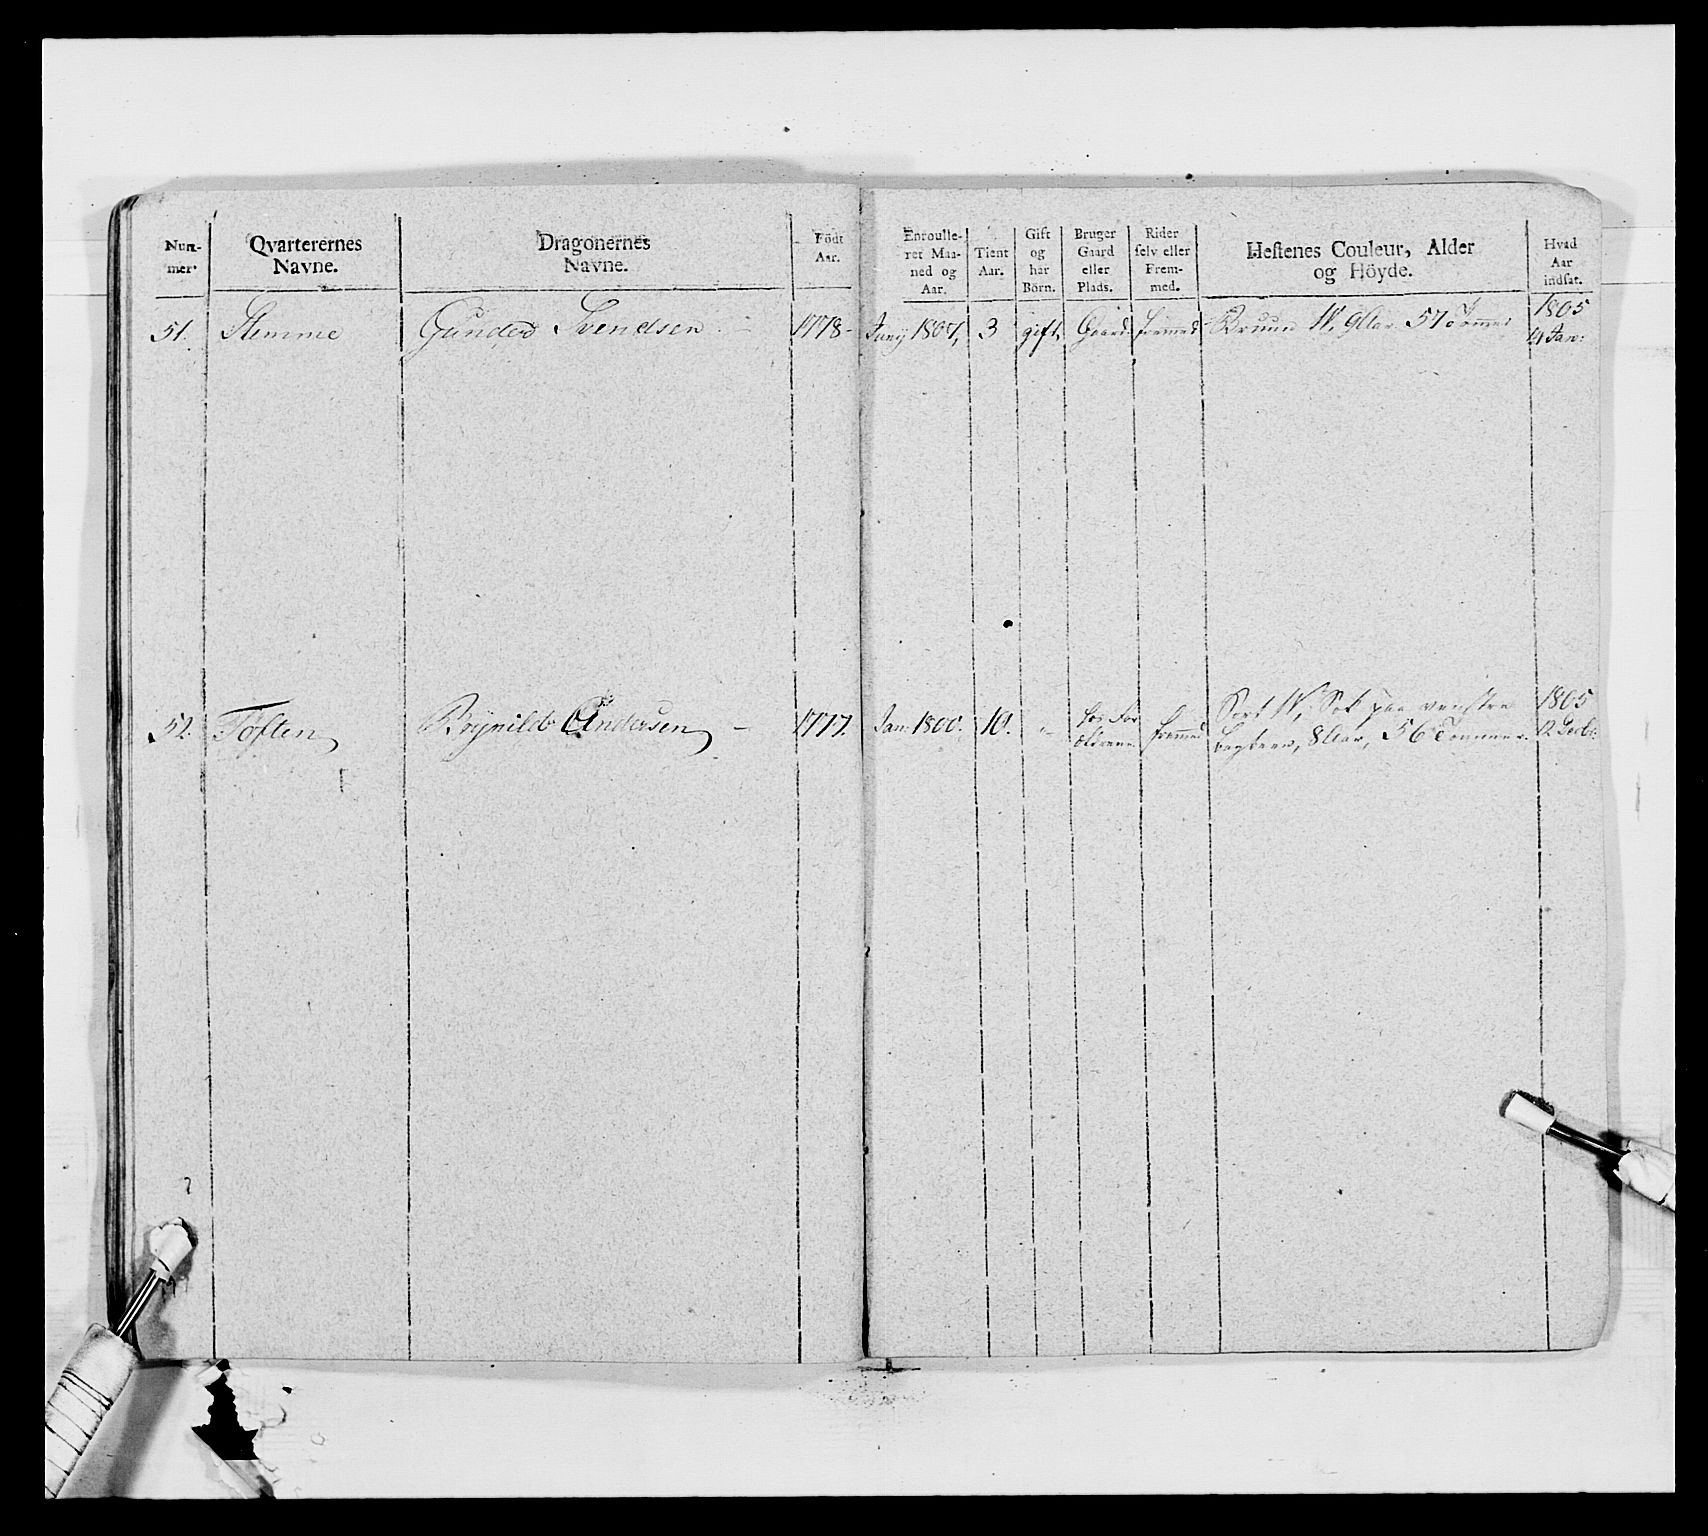 Num-
mer.
Qvarterernes
Navne.
Dragonernes
Navne.
Födt
Aar.
Enroulle-
ret Maa-
ned og
Aar.
Tient
Aar.
Gift
og
har
Börn.
Bruger
Gaard
eller
Plads.
Rider
selv eller
Frem-
med.
Hestenes Couleur, Alder
og Höyde.
Hvad
Aar
indsat.
51. Stemme Gunder Svendsen 1778 - Juny 1807, 3 gift. Gaard fremmed Bruun W, 9 Aar. 57 Tommer 1805
14 Jan:
52. Toften Brynild Andersen - 1777. Jan: 1800. 10. - hos For
ældrene fremmed Sort W, Sok paa venstre
bagbeen, 8 Aar, 56 Tommer. 1805
12 Decbr.